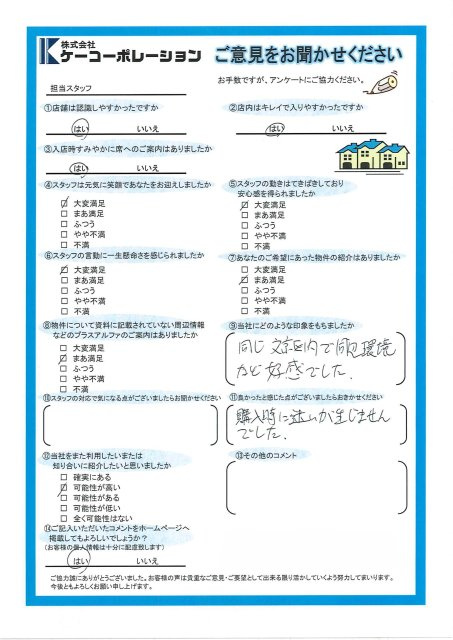 株式会社
ケーコーポレーション
ご意見をお聞かせください
お手数ですが、アンケートにご協力ください。
担当スタッフ
①店舗は認識しやすかったですか
はい いいえ
②店内はキレイで入りやすかったですか
はい いいえ
③入店時すみやかに席へのご案内はありましたか
はい いいえ
④スタッフは元気に笑顔であなたをお迎えしましたか
大変満足
まあ満足
ふつう
やや不満
不満
⑤スタッフの動きはてきぱきしており
安心感を得られましたか
大変満足
まあ満足
ふつう
やや不満
不満
⑥スタッフの言動に一生懸命さを感じられましたか
大変満足
まあ満足
ふつう
やや不満
不満
⑦あなたのご希望にあった物件の紹介はありましたか
大変満足
まあ満足
ふつう
やや不満
不満
⑧物件について資料に記載されていない周辺情報
などのプラスアルファのご案内はありましたか
大変満足
まあ満足
ふつう
やや不満
不満
⑨当社にどのような印象をもちましたか
同じ文京区内で同じ環境
など好感でした.
⑩スタッフの対応で気になる点がございましたらお聞かせください
⑪良かったと感じた点がございましたらおきかせください
購入時に迷いが生じません
でした.
⑫当社をまた利用したいまたは
知り合いに紹介したいと思いましたか
確実にある
可能性が高い
可能性がある
可能性が低い
全く可能性はない
⑬その他のコメント
⑭ご記入いただいたコメントをホームページへ
掲載してもよろしいでしょうか?
(お客様の個人情報は十分に配慮致します)
はい いいえ
ご協力誠にありがとうございました。お客様の声は貴重なご意見・ご要望として出来る限り活かしていくよう努力してまいります。
今後ともよろしくお願い申し上げます。